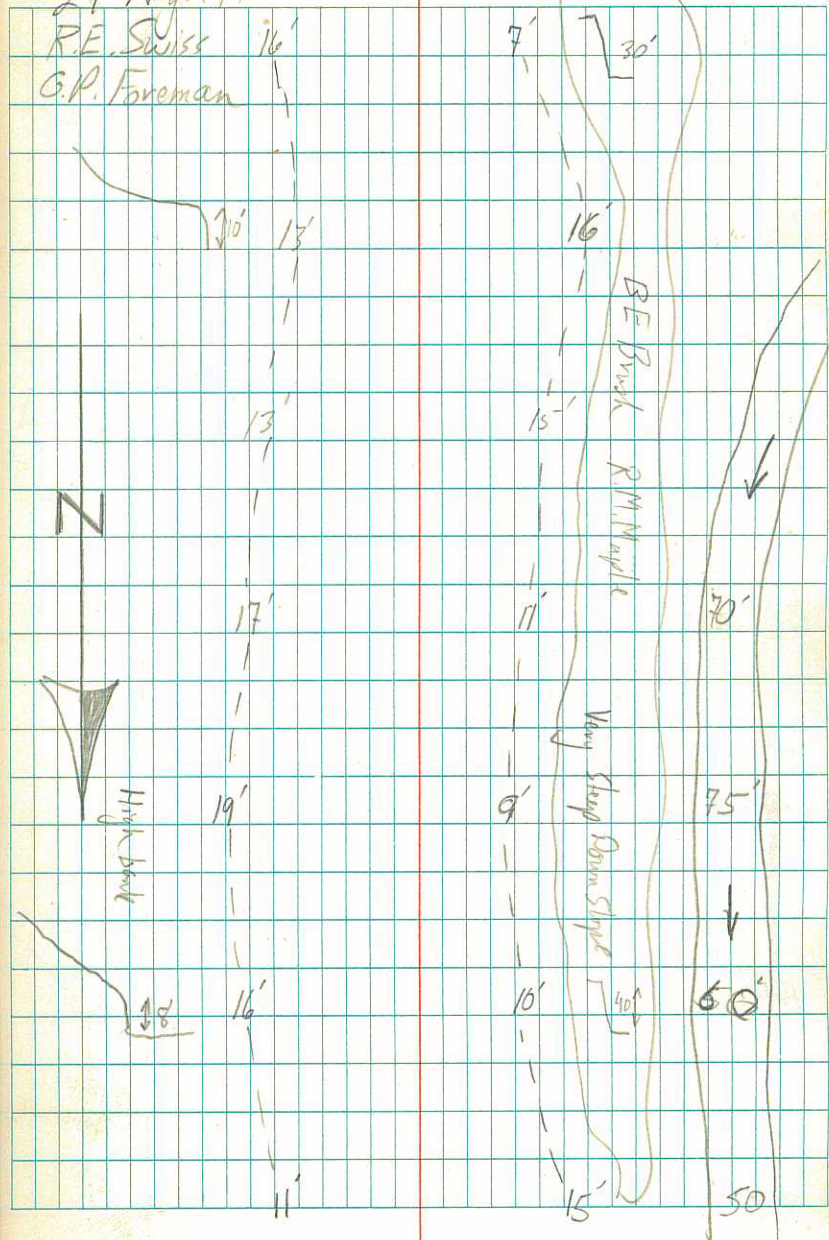 R.E. Swiss
G.P. Foreman
16'
7'
30'
10'
13'
16'
BE Brush R.M. Maple
13'
15'
N
17'
11'
70'
Very Steep Down Slope
High bank
19'
9'
75'
8'
16'
10'
40'
60'
11'
15'
50